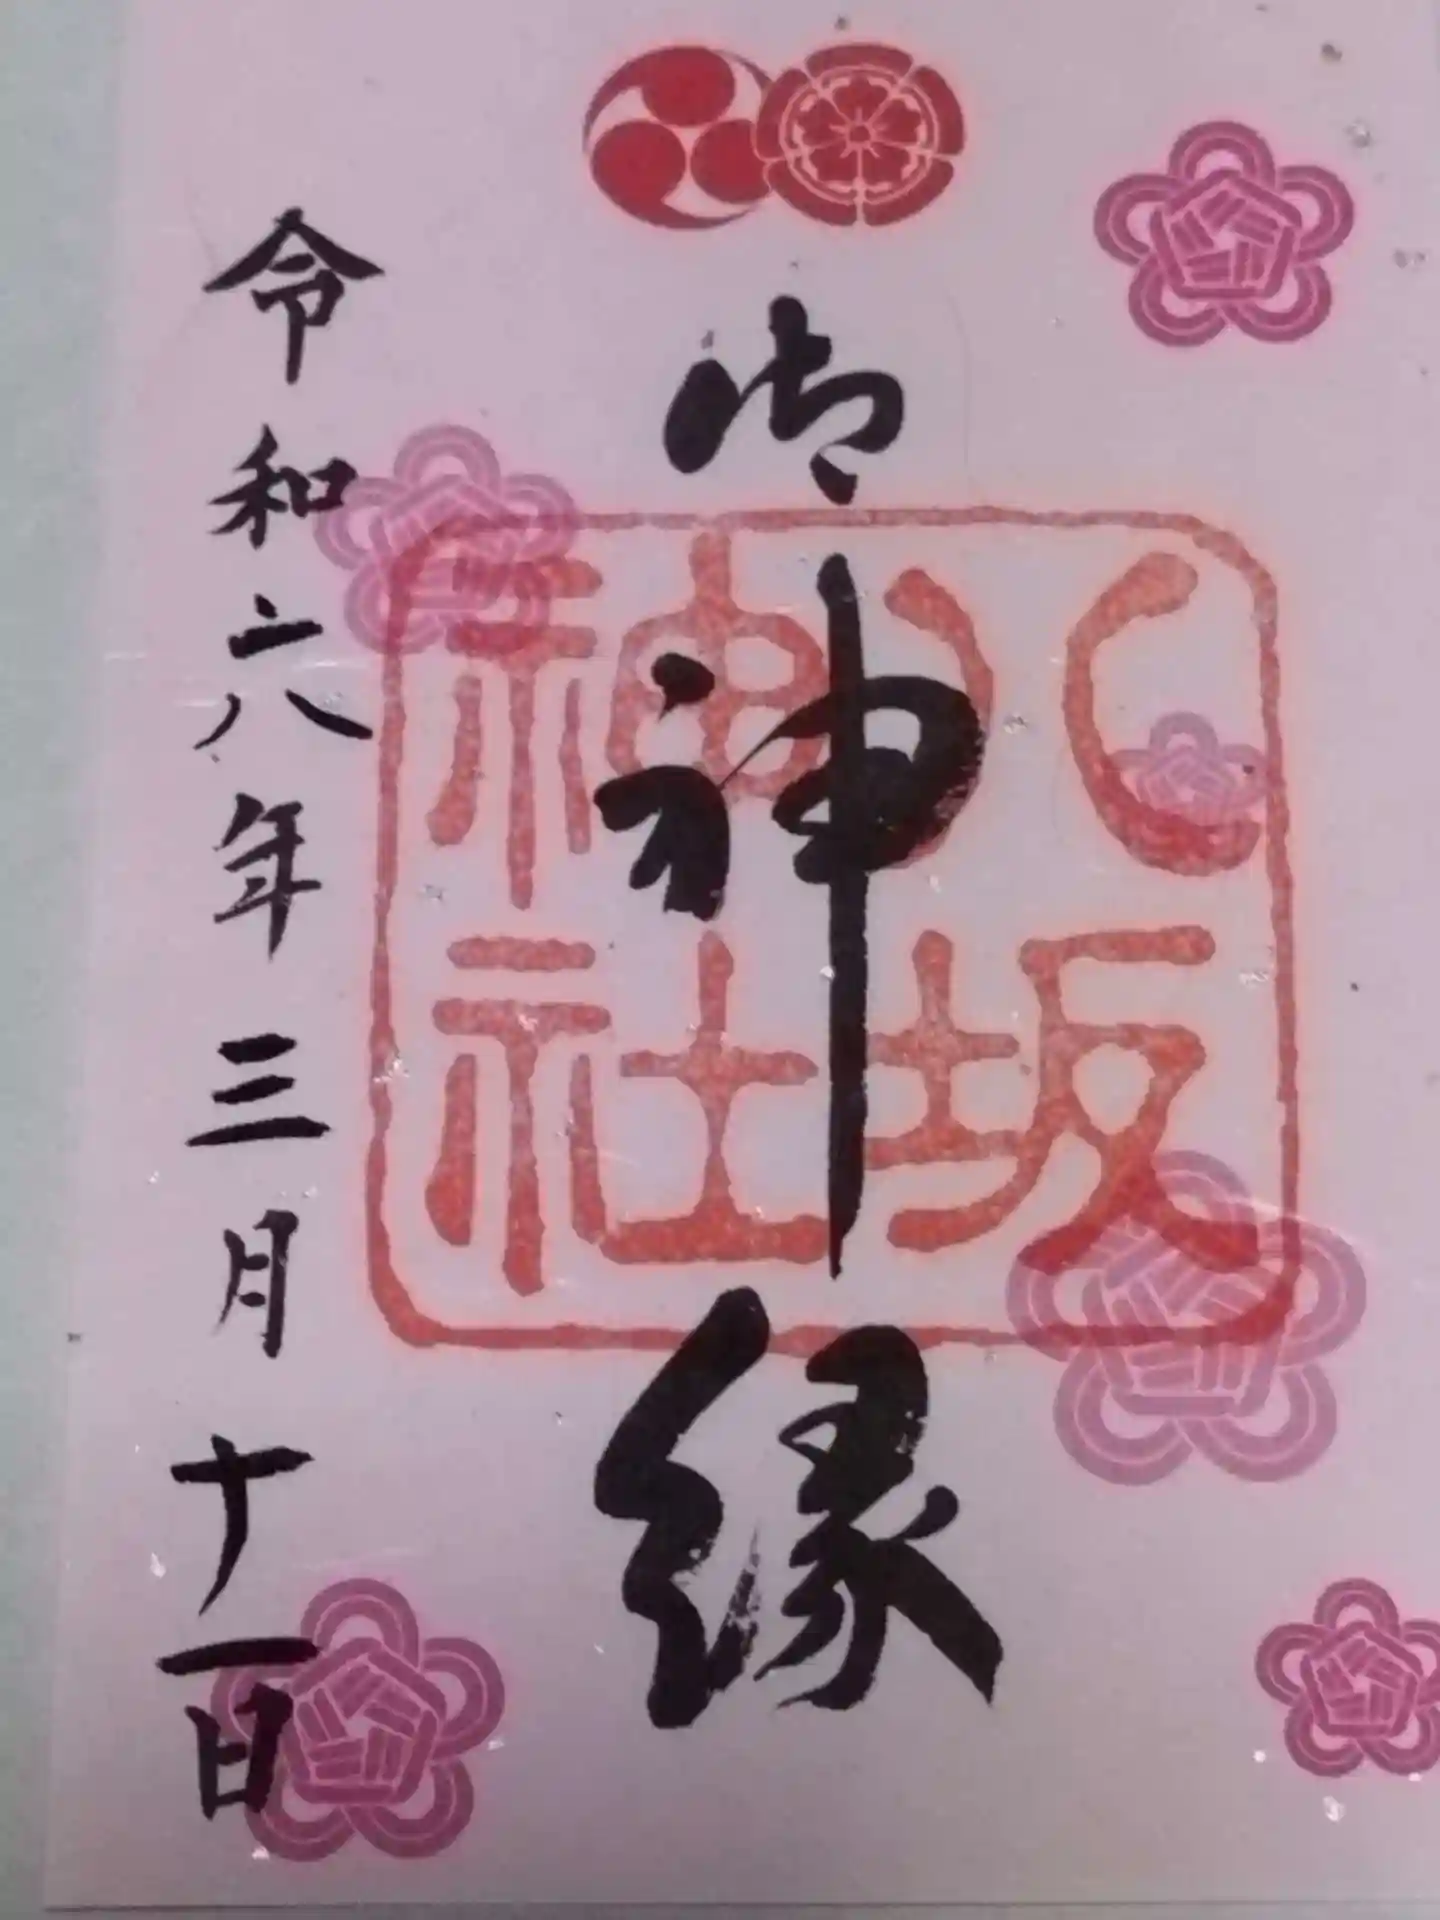 御神縁
八坂神社
令和六年三月十一日